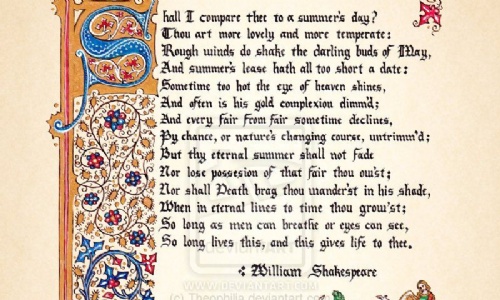 Shall I compare thee to a summer's day?
Thou art more lovely and more temperate:
Rough winds do shake the darling buds of May,
And summer's lease hath all too short a date:
Sometime too hot the eye of heaven shines,
And often is his gold complexion dimm'd;
And every fair from fair sometime declines,
By chance, or nature's changing course, untrimm'd;
But thy eternal summer shall not fade
Nor lose possesion of that fair thou ow'st;
Nor shall Death brag thou wander'st in his shade,
When in eternal lines to time thou grow'st;
So long as men can breathe or eyes can see,
So long lives this, and this gives life to thee.
William Shakespeare
WWW.DEVIANTART.COM
(c) Theophilia.deviantart.com